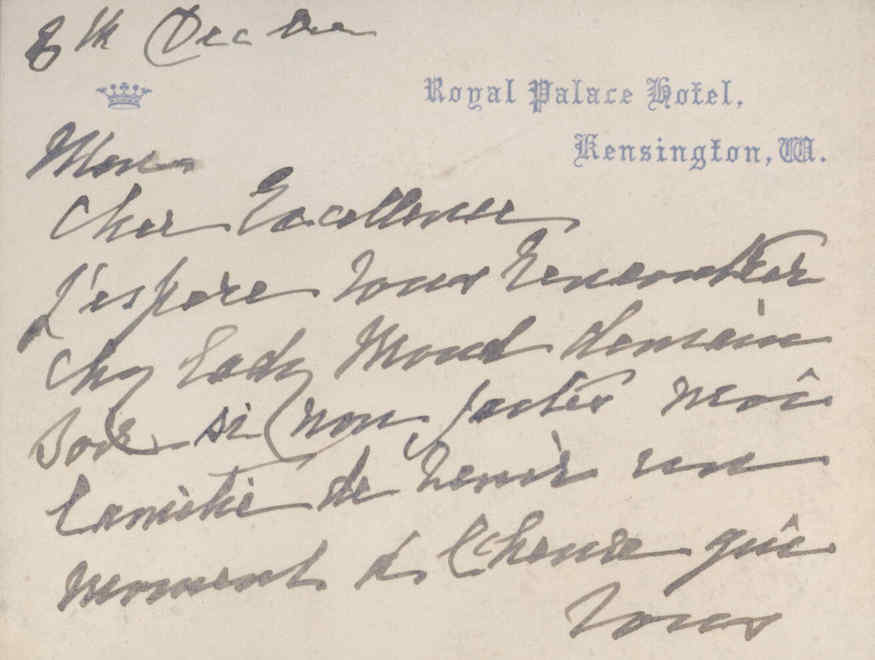 8th Decbre
Royal Palace Hotel,
Kensington, W.
Mon
Cher Excellence
J'espère vous rencontrer
chez Lady Mond demain
soir si non faites moi
l'amitié de venir un
moment à l'heure que
vous